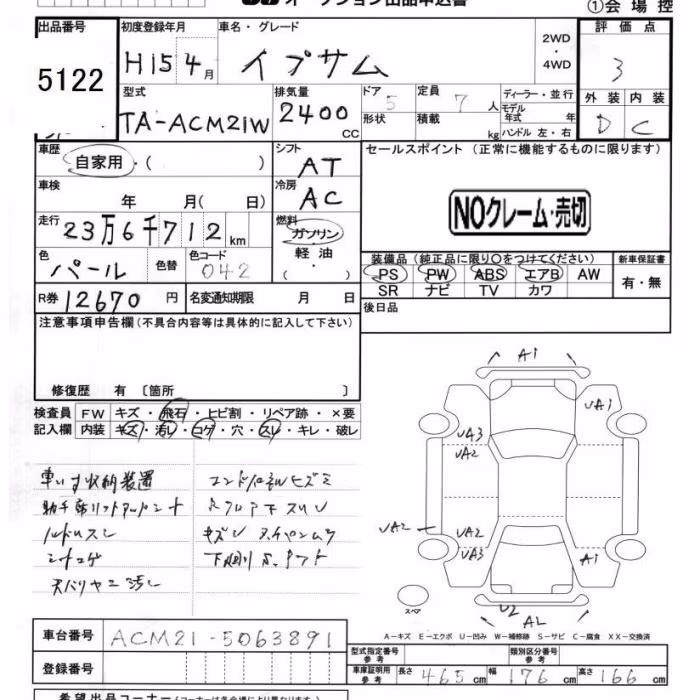 オークション出品申込書
①会場控
出品番号 初度登録年月 車名・グレード 2WD・4WD 評価点
5122 H15 4月 イプサム 3
型式 排気量 ドア 5 定員 7人 ディーラー・並行 外装 内装
TA-ACM21W 2400cc 形状 積載 kg モデル年式 年 D C
ハンドル 左・右
車歴 自家用・( ) シフト AT セールスポイント (正常に機能するものに限ります)
車検 年 月( 日) 冷房 AC
NOクレーム・売切
走行 23万6千712km 燃料 ガソリン・軽油・( )
色 パール 色替 色コード 042 装備品(純正品に限り〇をつけてください) 新車保証書
PS PW ABS エアB AW 有・無
SR ナビ TV カワ
R券 12670円 名変通知期限 月 日 後日品
注意事項申告欄(不具合内容等は具体的に記入して下さい)
修復歴 有 〔箇所 〕
検査員 FW キズ・飛石・ヒビ割・リペア跡・×要
記入欄 内装 キズ・汚レ・コゲ・穴・スレ・キレ・破レ
車いす収納装置
助手席リフトアップシート
シートコゲ
A1
UA1
UA3
UA2
UA2
UA2
UA3
A1
U2
スペア
A-キズ E-エクボ U-凹み W-補修跡 S-サビ C-腐食 XX-交換済
車台番号 ACM21-5063891
登録番号
型式指定番号 参考 類別区分番号 参考
車庫証明用 参考 長さ 465cm 幅 176cm 高さ 166cm
希望出品コーナー